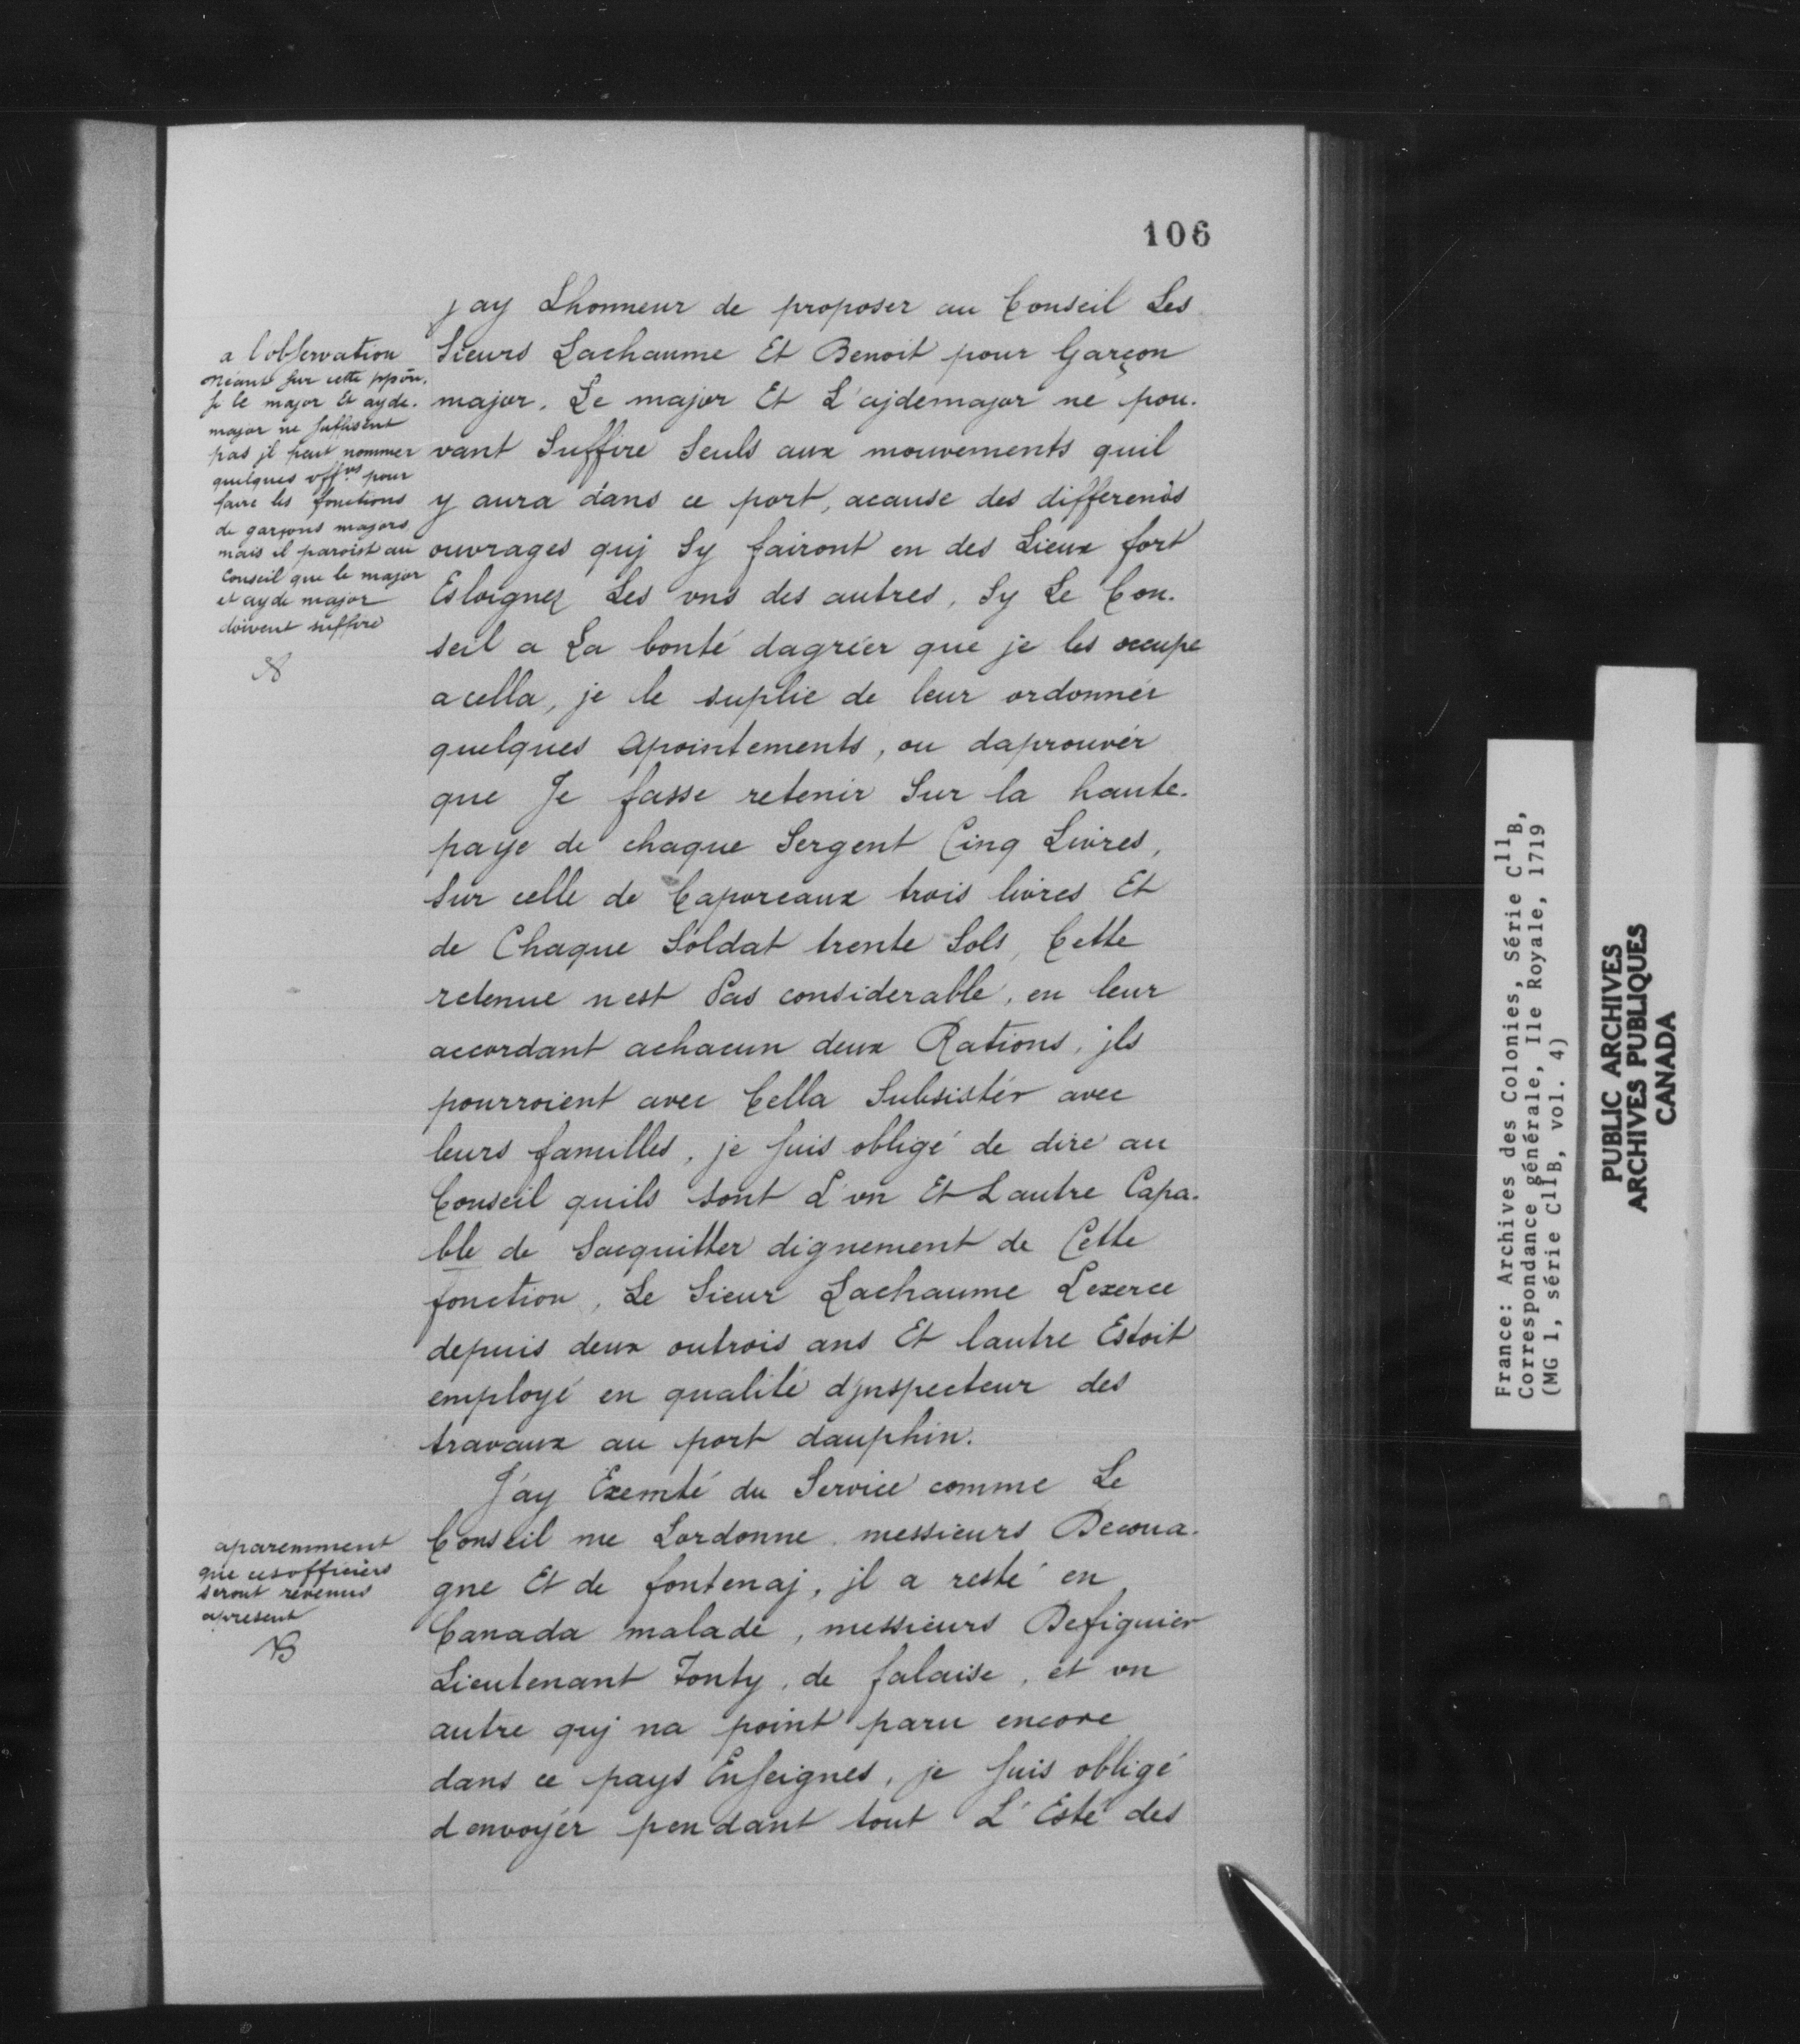 106
jay Lhonneur de proposer au Conseil Les
Sieurs Lachaume Et Benoit pour Garçon
major. Le major Et L'ajdemajor ne pou-
vant Suffire Seuls aux mouvements quil
y aura dans ce port, acause des differends
ouvrages quj Sy fairont en des Lieux fort
Esloignez Les vns des autres, Sy Le Con-
seil a La bonté dagréer que je les occupe
acella, je le suplie de leur ordonnér
quelques apointements, ou daprouvér
que Je fasse retenir Sur la haute-
paye de chaque Sergent Cinq Livres,
Sur celle de Caporeaux trois livres Et
de Chaque Soldat trente Sols, Cette
retenue nest Pas considerable, en leur
accordant achacun deux Rations, jls
pourroient avec Cella Subsistér avec
leurs familles, je suis obligé de dire au
Conseil quils sont L'vn Et Lautre Capa-
ble de Sacquitter dignement de Cette
fonction, Le Sieur Lachaume Lexerce
depuis deux outrois ans Et lautre Estoit
employé en qualité djnspecteur des
travaux au port dauphin.
J'ay Exemté du Service comme Le
Conseil me Lordonne messieurs Decoua-
gne Et de fontenaj, jl a resté en
Canada malade, messieurs Defiguier
Lieutenant Tonty, de falaise, et vn
autre quj na point paru encore
dans ce pays Enseignes, je suis obligé
denvoyér pendant tout L'Esté des
a l'observation
Néant sur cette ppõn.
si le major et ayde-
major ne suffisent
pas jl peut nommer
quelques off.rs pour
faire les fonctions
de garçons majors
mais il paroist au
Conseil que le major
et ayde major
doivent suffire
aparemment
que ces officiers
seront revenus
apresent
France: Archives des Colonies, Série C11B,
Correspondance générale, Ile Royale, 1719
(MG 1, série C11B, vol. 4)
PUBLIC ARCHIVES
ARCHIVES PUBLIQUES
CANADA